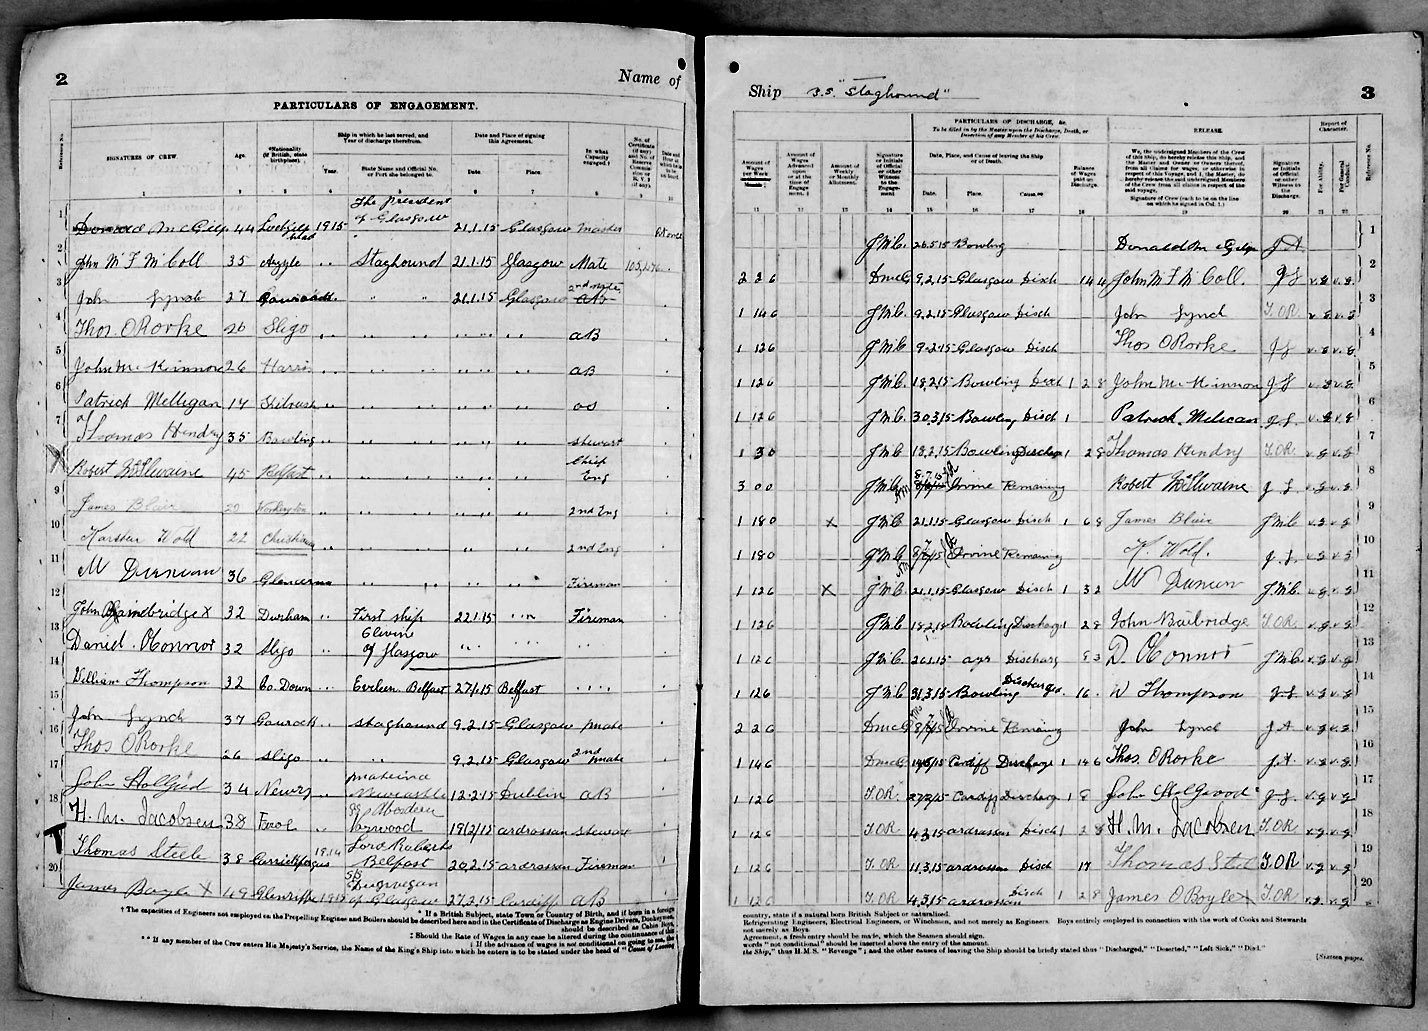 2
Name of
PARTICULARS OF ENGAGEMENT.
Reference No.
SIGNATURES OF CREW.
Age.
*Nationality
(if British, state
birthplace).
Ship in which he last served, and
Year of discharge therefrom.
Year.
State Name and Official No.
or Port she belonged to.
Date and Place of signing
this Agreement.
Date.
Place.
In what
Capacity
engaged
No. of
Certificate
(if any)
1 Donald McGilp 44 Lochgilphead 1915 The President of Glasgow 21.1.15 Glasgow Master At once
2 John McF McColl 35 Argyle " Staghound 21.1.15 Glasgow Mate
3 John Lynch 27 Gourock " " " 21.1.15 Glasgow 2nd Mate AB
4 Thos. O Rorke 26 Sligo " " " AB
5 John McKinnon 26 Harris " " " AB
6 Patrick Melligan 17 Kilrush " " " OS
7 Thomas Hendry 35 Bowling " " " Stewart
8 Robert McIlwaine 45 Belfast " " " Chief Eng
9 James Blair Workington " " " 2nd Eng
10 Karsten Wold 22 Christiania " " " 2nd Eng
11 M Duncan 36 " " " Fireman
12 John Bainbridge X 32 Durham " First ship 22.1.15 " " Fireman
13 Daniel O'Connor 32 Sligo " of Glasgow " "
14 William Thompson 32 Co. Down " Eveleen Belfast 27/1.15 Belfast " "
15 John Lynch 37 Gourock " Staghound 9.2.15 Glasgow Mate
16 Thos O Rorke 26 Sligo " " 9.2.15 Glasgow 2nd Mate
17 John 34 Newry " Newcastle 12.2.15 Dublin AB
18 H. M. Jacobsen 38 " 19/2/15 Ardrossan Steward
19 Thomas Steele 38 Carrickfergus 1914 Lord Roberts Belfast 20.2.15 Ardrossan Fireman
20 James Boyle X 49 1915 SS Dunvegan of Glasgow 27.2.15 Cardiff AB
† The capacities of Engineers not employed on the Propelling Engines and Boilers should be described here and in the Certificate of Discharge as Engine Drivers, Donkeymen,
* If a British Subject, state Town or Country of Birth, and if born in a foreign
should be described as Cabin Boys.
‡ Should the Rate of Wages in any case be altered during the continuance of the
§ If the advance of wages is not conditional on going to sea, the
** If any member of the Crew enters His Majesty's Service, the Name of the King's Ship into which he enters is to be stated under the head of "Cause of Leaving
Ship S.S. "Staghound"
3
PARTICULARS OF DISCHARGE, &c.
To be filled in by the Master upon the Discharge, Death, or
Desertion of any Member of his Crew.
Amount of
Wages
per Week
Month
Amount of
Wages
Advanced
upon or
at the
time of
Engage-
ment.
Amount of
Weekly
or
Monthly
Allotment.
Signature
or Initials
of Official
or other
Witness
to the
Engage-
ment
Date, Place, and Cause of leaving the Ship
or of Death.
Date.
Place.
Cause.
Balance
of Wages
paid on
Discharge.
RELEASE.
We, the undersigned Members of the Crew
of this Ship, do hereby release this Ship, and
the Master and Owner or Owners thereof,
from all Claims for wages, or otherwise in
respect of this Voyage, and I, the Master, do
hereby release the said undersigned Members
of the Crew from all claims in respect of the
said voyage.
Signature of Crew (each to be on the line
on which he signed in Col. 1.)
Signature
or Initials
of Official
or other
Witness to
the
Discharge.
Report of
Character.
For Ability.
For General
Conduct.
Reference No.
J McC. 26.5.15 Bowling Donald McGilp J A 1
2 2 6 DMcG 9.2.15 Glasgow Disch 14 4 John McF McColl JL v.g v.g 2
1 14 6 J McC 9.2.15 Glasgow Disch John Lynch T.OR. v.g v.g 3
1 12 6 J McC 9.2.15 Glasgow Disch Thos O Rorke JL v.g v.g 4
1 12 6 J McC 18.2.15 Bowling Disch 1 2 8 John McKinnon JL v.g v.g 5
1 12 6 J McC 30.3.15 Bowling Disch 1 Patrick Melican JL v.g v.g 6
1 30 J McC 18.2.15 Bowling Discharge 1 2 8 Thomas Hendry T.OR. v.g v.g 7
3 0 0 J McC Irvine Remaining Robert McIlwaine J L v.g v.g 8
1 18 0 X J McC 21.1.15 Glasgow Disch 1 6 8 James Blair J McC v.g v.g 9
1 18 0 J McC Irvine Remaining K. Wold. J.L. v.g v.g 10
1 12 6 X J McC 21.1.15 Glasgow Disch 1 3 2 M Duncan J.McC. v.g v.g 11
1 12 6 J McC 18.2.15 Bowling Discharge 1 2 8 John Bainbridge T.OR. v.g v.g 12
1 12 6 J McC 26.1.15 Ayr Discharg 8 3 D. O'Connor J McC. v.g v.g 13
1 12 6 J McC 31.3.15 Bowling Discharged 16 W Thompson J.L v.g v.g 14
2 2 6 DMcG Irvine Remaining John Lynch J.A v.g v.g 15
1 14 6 DMcG Cardiff Discharge 1 14 6 Thos. O Rorke J.A. v.g v.g 16
1 12 6 T.OR. 27/2/15 Cardiff Discharge 1 8 John J L v.g v.g 17
1 12 6 T.OR 4.3.15 Ardrossan Disch 1 2 8 H. M. Jacobsen T.OR v.g v.g 18
1 12 6 T.OR 11.3.15 Ardrossan Disch 17 Thomas Steel T.OR v.g v.g 19
1 12 6 T.OR 4.3.15 Ardrossan Disch 1 2/8 James O Boyle X T.OR. v.g v.g 20
country, state if a natural born British Subject or naturalized.
Refrigerating Engineers, Electrical Engineers, or Winchmen, and not merely as Engineers. Boys entirely employed in connection with the work of Cooks and Stewards
not merely as Boys.
Agreement, a fresh entry should be made, which the Seamen should sign.
words "not conditional" should be inserted above the entry of the amount.
the Ship," thus H.M.S. "Revenge"; and the other causes of leaving the Ship should be briefly stated thus "Discharged," "Deserted," "Left Sick," "Died."
[Sixteen pages.